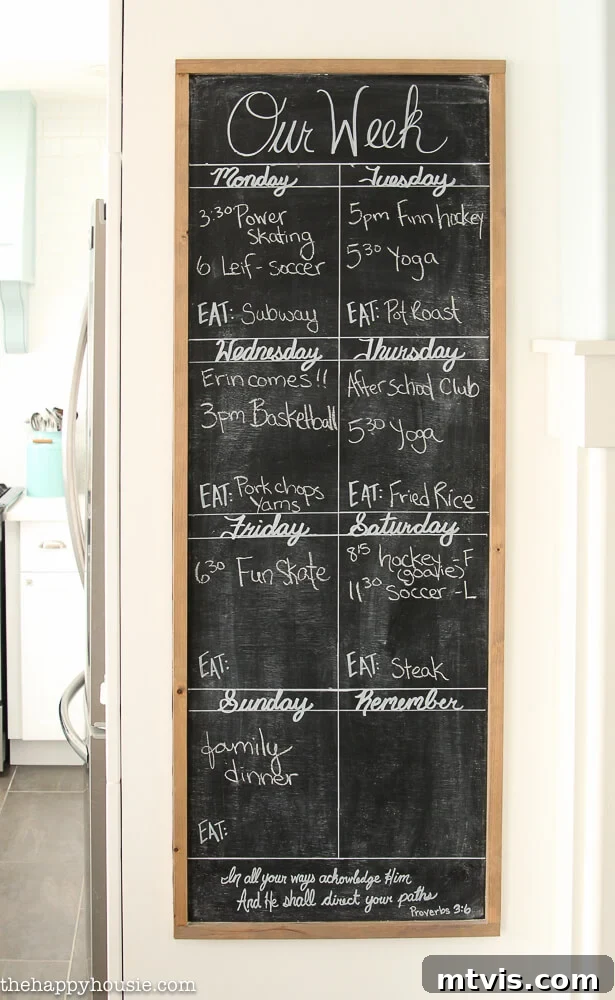 Our Week
Monday
3:30 Power
Skating
6 Leif - soccer
EAT: Subway
Tuesday
5pm Finn hockey
5:30 Yoga
EAT: Pot Roast
Wednesday
Erin comes!!
3pm Basketball
EAT: Pork chops
Yams
Thursday
After school Club
5:30 Yoga
EAT: Fried Rice
Friday
6:30 Fun Skate
EAT:
Saturday
8:15 hockey - F
(goalie)
11:30 Soccer - L
EAT: Steak
Sunday
family
dinner
EAT:
Remember
In all your ways acknowledge Him
And He shall direct your paths
Proverbs 3:6
thehappyhousie.com
mtvis.com